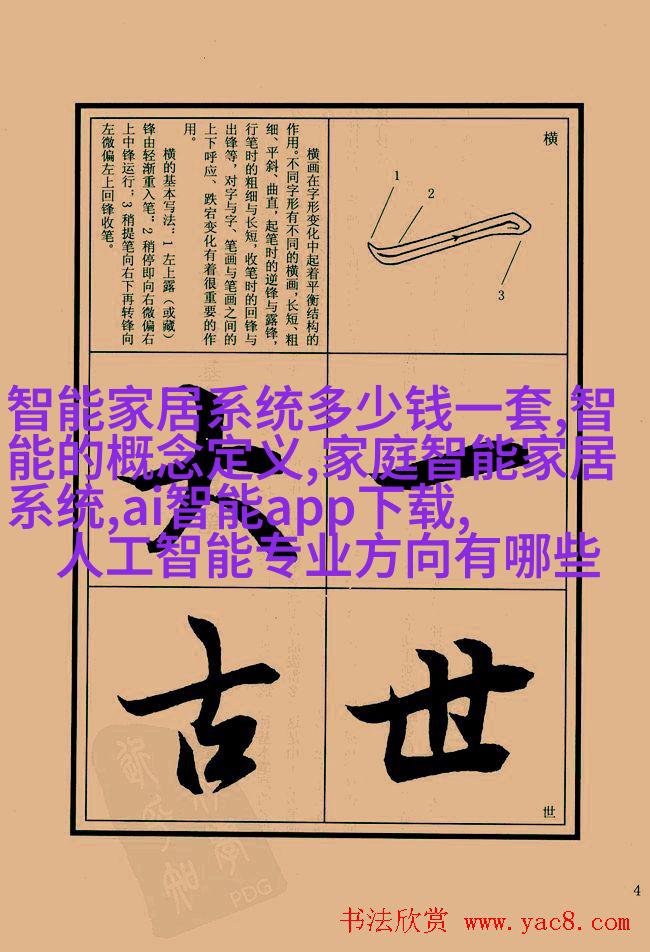 横
1
2
3
横画在字形变化中起着平衡结构的
作用。不同字形有不同的横画，长短、粗
细、平斜、曲直，起笔时的逆锋与露锋，
行笔时的粗细与长短，收笔时的回锋与
出锋等，对字与字、笔画与笔画之间的
上下呼应、跌宕变化有着很重要的作
用。
横的基本写法：1 左上露（或藏）
锋由轻渐重入笔；2 稍停即向右微偏右
上中锋运行；3 稍提笔向右下再转锋向
左微偏左上回锋收笔。
智能家居系统多少钱一套,智
能的概念定义,家庭智能家居
系统,ai智能app下载,
人工智能专业方向有哪些
一
大
世
古
世
PDG
4
书法欣赏 www.yac8.com